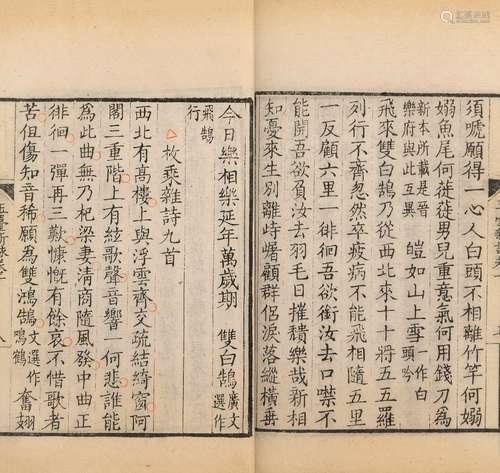 須嘘願得一心人白頭不相離竹竿何嫋
嫋魚尾何蓰蓰男兒重意氣何用錢刀為
新本所載是晉
樂府與此互異
皚如山上雪
一作白
頭吟
飛來雙白鵠乃從西北來十十將五五羅
列行不齊忽然卒疲病不能飛相隨五里
一反顧六里一徘徊吾欲銜汝去口噤不
能開吾欲負汝去羽毛日摧頹樂哉新相
知憂來生別離峙躇顧群侶淚落縱橫垂
今日樂相樂延年萬歲期 雙白鵠
廣文
選作
飛鵠
行
枚乘雜詩九首
西北有高樓上與浮雲齊交疏結綺窗阿
閣三重階上有絃歌聲音響一何悲誰能
為此曲無乃杞梁妻清商隨風發中曲正
徘徊一彈再三歎慷慨有餘哀不惜歌者
苦但傷知音稀願為雙鴻鵠
文選作
鳴鶴
奮翅